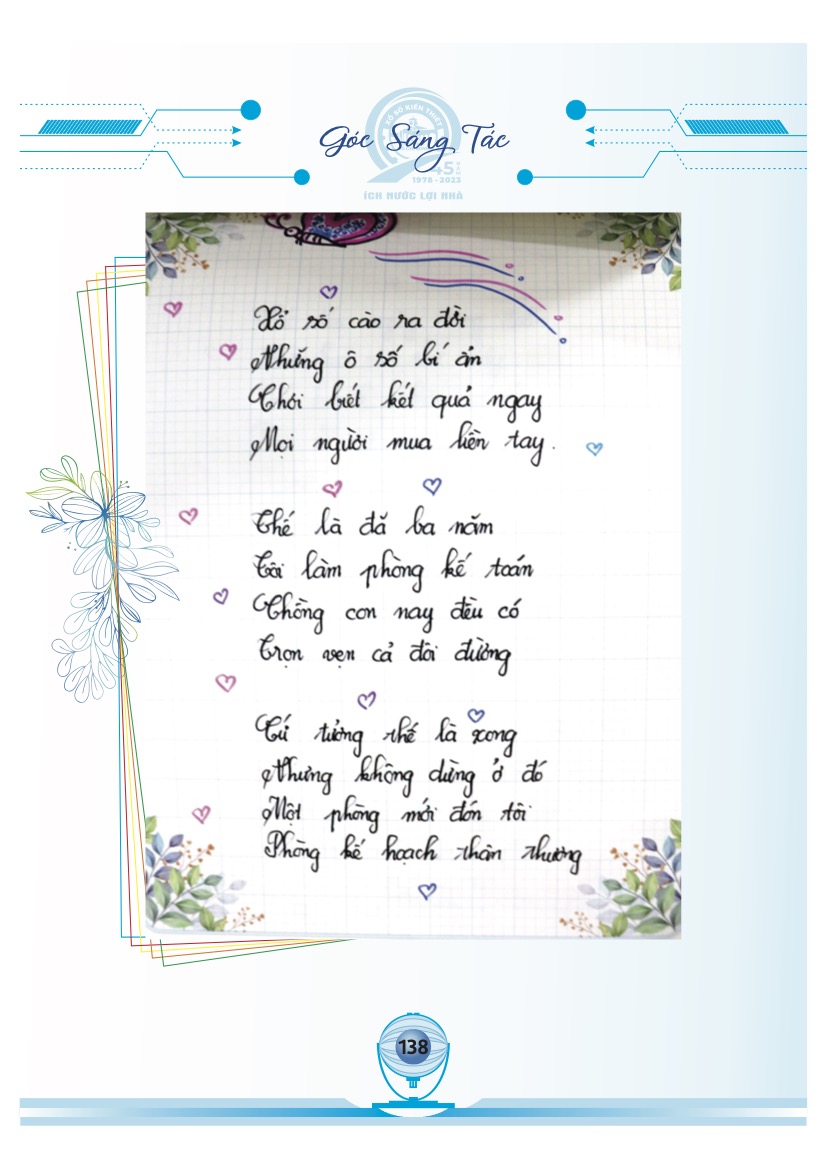 XỔ SỐ KIẾN THIẾT
Góc Sáng Tác
45
1978 - 2023
ÍCH NƯỚC LỢI NHÀ
Xổ số cào ra đời
Những ô số bí ẩn
Chơi biết kết quả ngay
Mọi người mua liền tay.
Thế là đã ba năm
Tôi làm phòng kế toán
Chồng con nay đều có
Trọn vẹn cả đôi đường
Cứ tưởng thế là xong
Nhưng không dừng ở đó
Một phòng mới đón tôi
Phòng kế hoạch thân thương
138